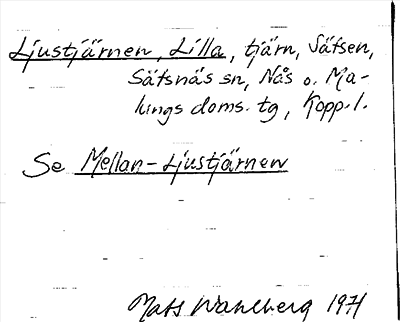 Ljustjärnen, Lilla, tjärn, Sätsen,
Sätsnäs sn, Nås o. Ma-
lungs doms. tg, Kopp. l.
Se Mellan-Ljustjärnen
Mats Wahlberg 1971